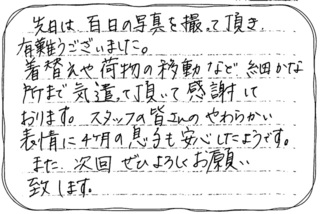 先日は、百日の写真を撮って頂き、
有難うございました。
着替えや荷物の移動など 細かな
所まで気遣って頂いて感謝して
おります。スタッフの皆さんのやわらかい
表情に4ヶ月の息子も安心したようです。
また、次回 ぜひよろしくお願い
致します。